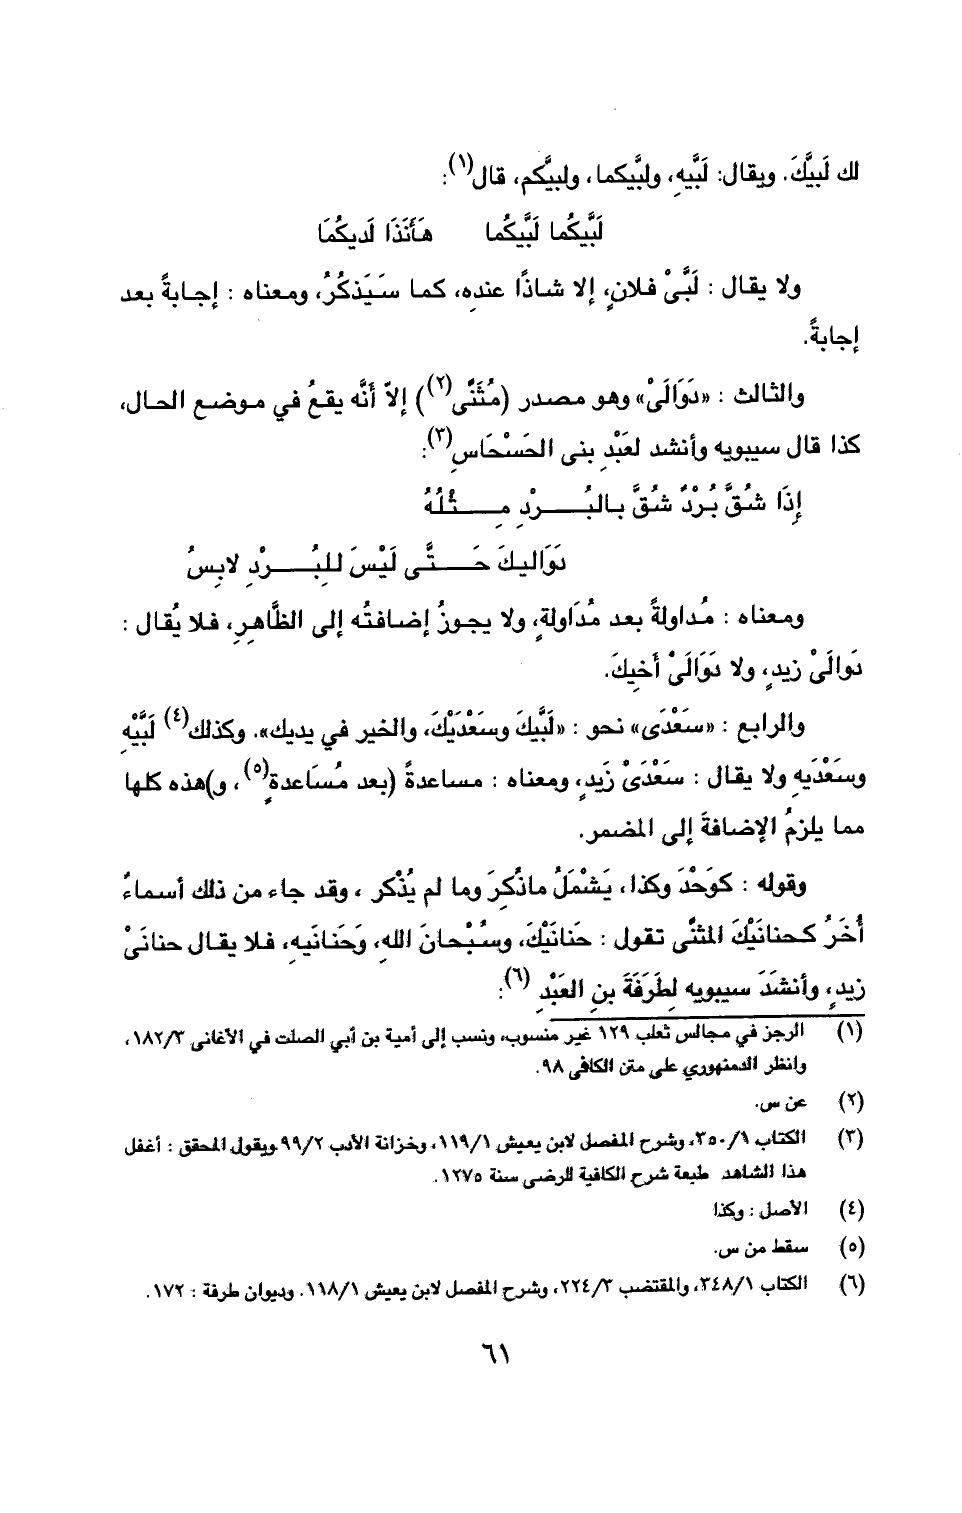 لك لَبيَّكَ. ويقال: لَبَّيهِ، ولبَّيكما، ولبيَّكم، قال(١):
لَبَّيكُما لَبَّيكُما هَأَنَذَا لَديكُمَا
ولا يقال : لَبَّىْ فلانٍ، إلا شاذًا عنده، كما سَيَذكُرُ، ومعناه : إجابةً بعد
إجابةً.
والثالث : «دَوَالَىْ» وهو مصدر (مُثَنَّى(٢)) إلاّ أنَّه يقعُ في موضع الحال،
كذا قال سيبويه وأنشد لعَبْدِ بنى الحَسْحَاسِ(٣):
إِذَا شُقَّ بُرْدٌ شُقَّ بالبُـــرْدِ مِــثْلُهُ
دَوَاليكَ حَـــتَّى لَيْسَ للبُـــرْدِ لابِسُ
ومعناه : مُداولةً بعد مُدَاولةٍ، ولا يجوزُ إضافتُه إلى الظَّاهِرِ، فلا يُقال :
دَوالَىْ زيدٍ، ولا دَوَالَىْ أَخيِكَ.
والرابع : «سَعْدَى» نحو : «لَبَّيكَ وسَعْدَيْكَ، والخير في يديك». وكذلك(٤) لَبَّيْهِ
وسَعْدَيهِ ولا يقال : سَعْدَىْ زَيدٍ، ومعناه : مساعدةً (بعد مُسَاعدةٍ(٥)، و)هذه كلها
مما يلزمُ الإضافةَ إلى المضمر.
وقوله : كوَحْدَ وكذا، يَشْمَلُ ماذُكِرَ وما لم يُذْكر ، وقد جاء من ذلك أسماءُ
أُخَرُ كحنانَيْكَ المثنَّى تقول : حَنانَيْكَ، وسُبْحانَ اللهِ، وَحَنانَيهِ، فلا يقال حنانَىْ
زيدٍ، وأنشَدَ سيبويه لطَرفَةَ بنِ العَبْدِ (٦):
(١) الرجز في مجالس ثعلب ١٢٩ غير منسوب، ونسب إلى أمية بن أبي الصلت في الأغانى ١٨٢/٣،
وانظر الدمنهوري على متن الكافى ٩٨.
(٢) عن س.
(٣) الكتاب ٣٥٠/١، وشرح المفصل لابن يعيش ١١٩/١، وخزانة الأدب ٩٩/٢.ويقول المحقق : أغفل
هذا الشاهد طبعة شرح الكافية للرضى سنة ١٢٧٥.
(٤) الأصل : وكذا
(٥) سقط من س.
(٦) الكتاب ٣٤٨/١، والمقتضب ٢٢٤/٣، وشرح المفصل لابن يعيش ١١٨/١. وديوان طرفة : ١٧٢.
٦١